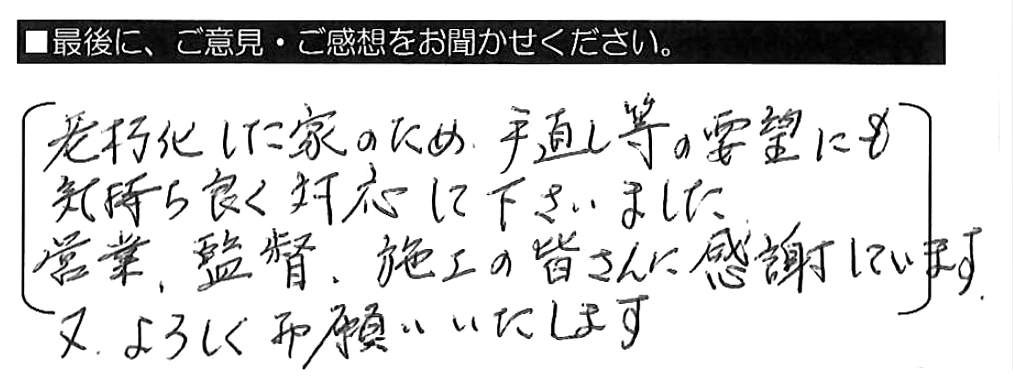 ■最後に、ご意見・ご感想をお聞かせください。
老朽化した家のため、手直し等の要望にも
気持ち良く対応して下さいました。
営業、監督、施工の皆さんに感謝しています。
又、よろしくお願いいたします